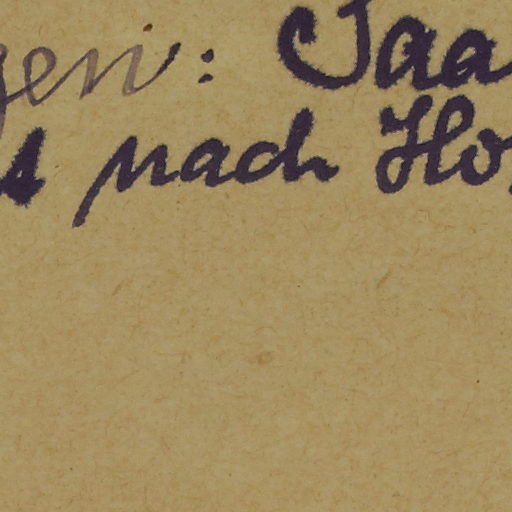 gen: Saa
t nach Ho